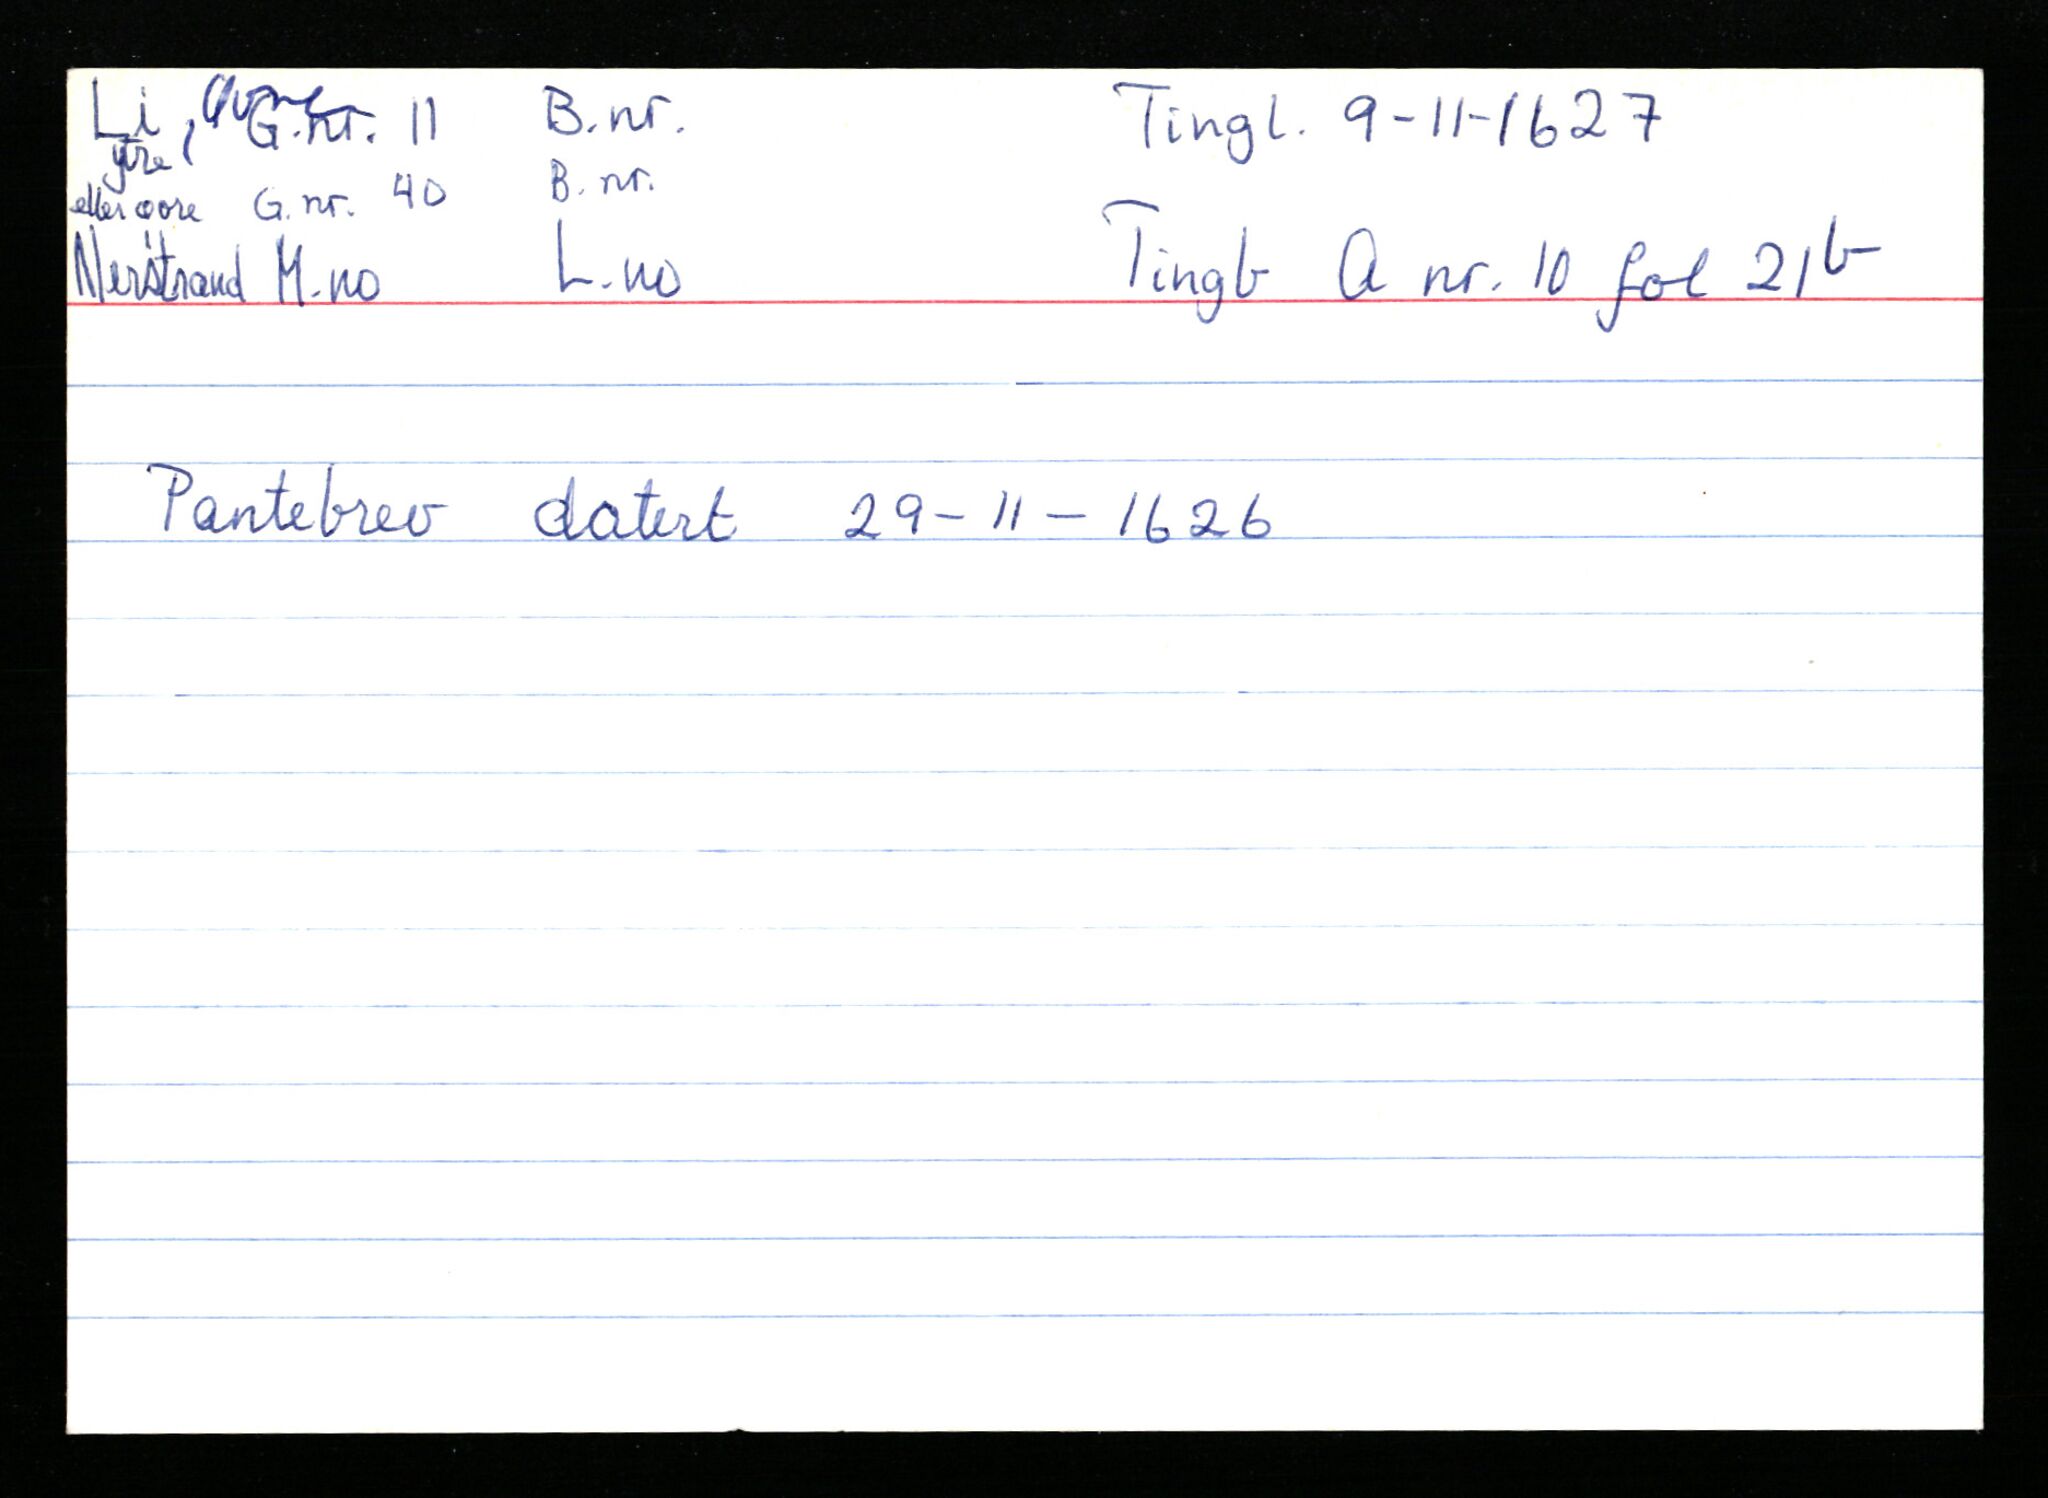 Li, G.nr. 11 B.nr. Tingl. 9-11-1627
ytre
eller øvre G.nr. 40 B.nr.
Nerstrand M.no L.no Tingb A nr. 10 fol 21b
Pantebrev datert 29-11-1626